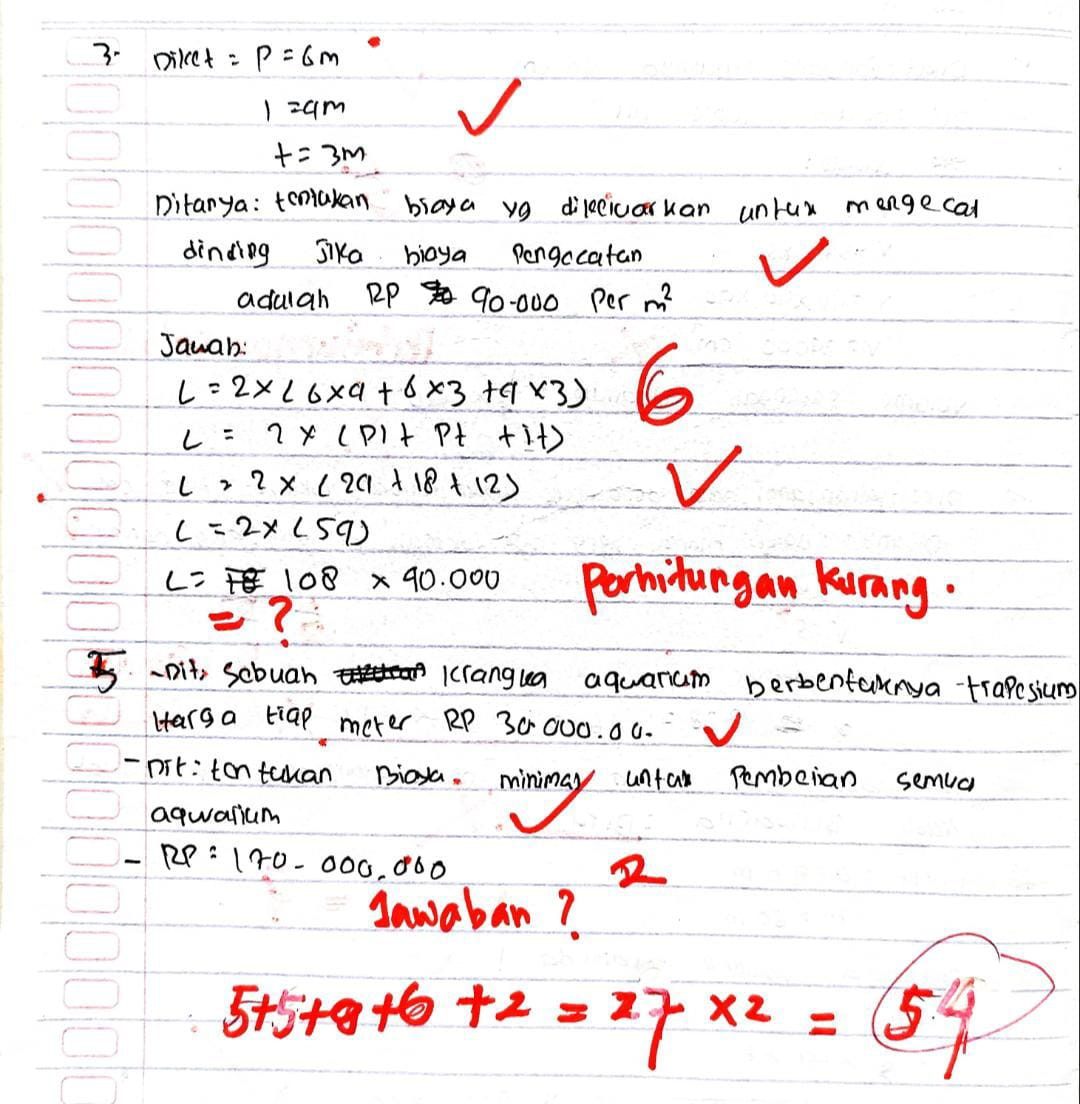 3. Diket = P = 6m
l = 4m
t = 3m
Ditanya: tentukan biaya yg dikeluarkan untuk mengecat
dinding jika biaya Pengecatan
adalah RP 40.000 Per m²
Jawab:
L = 2 x (6x4 + 6x3 + 4x3) 6
L = 2 x (Pl + Pt + lt)
L = 2 x (24 + 18 + 12)
L = 2x (54)
L = 108 x 40.000 Perhitungan kurang.
= ?
5. -Dit: Sebuah krangka aquarium berbentuknya trapesium
Harga tiap meter RP 30.000.00.
- Dit: tentukan Biaya minimal untuk Pembelian semua
aqwarium
- RP = 170.000.000 2
Jawaban ?
5+5+9+6+2 = 27 x2 = 54